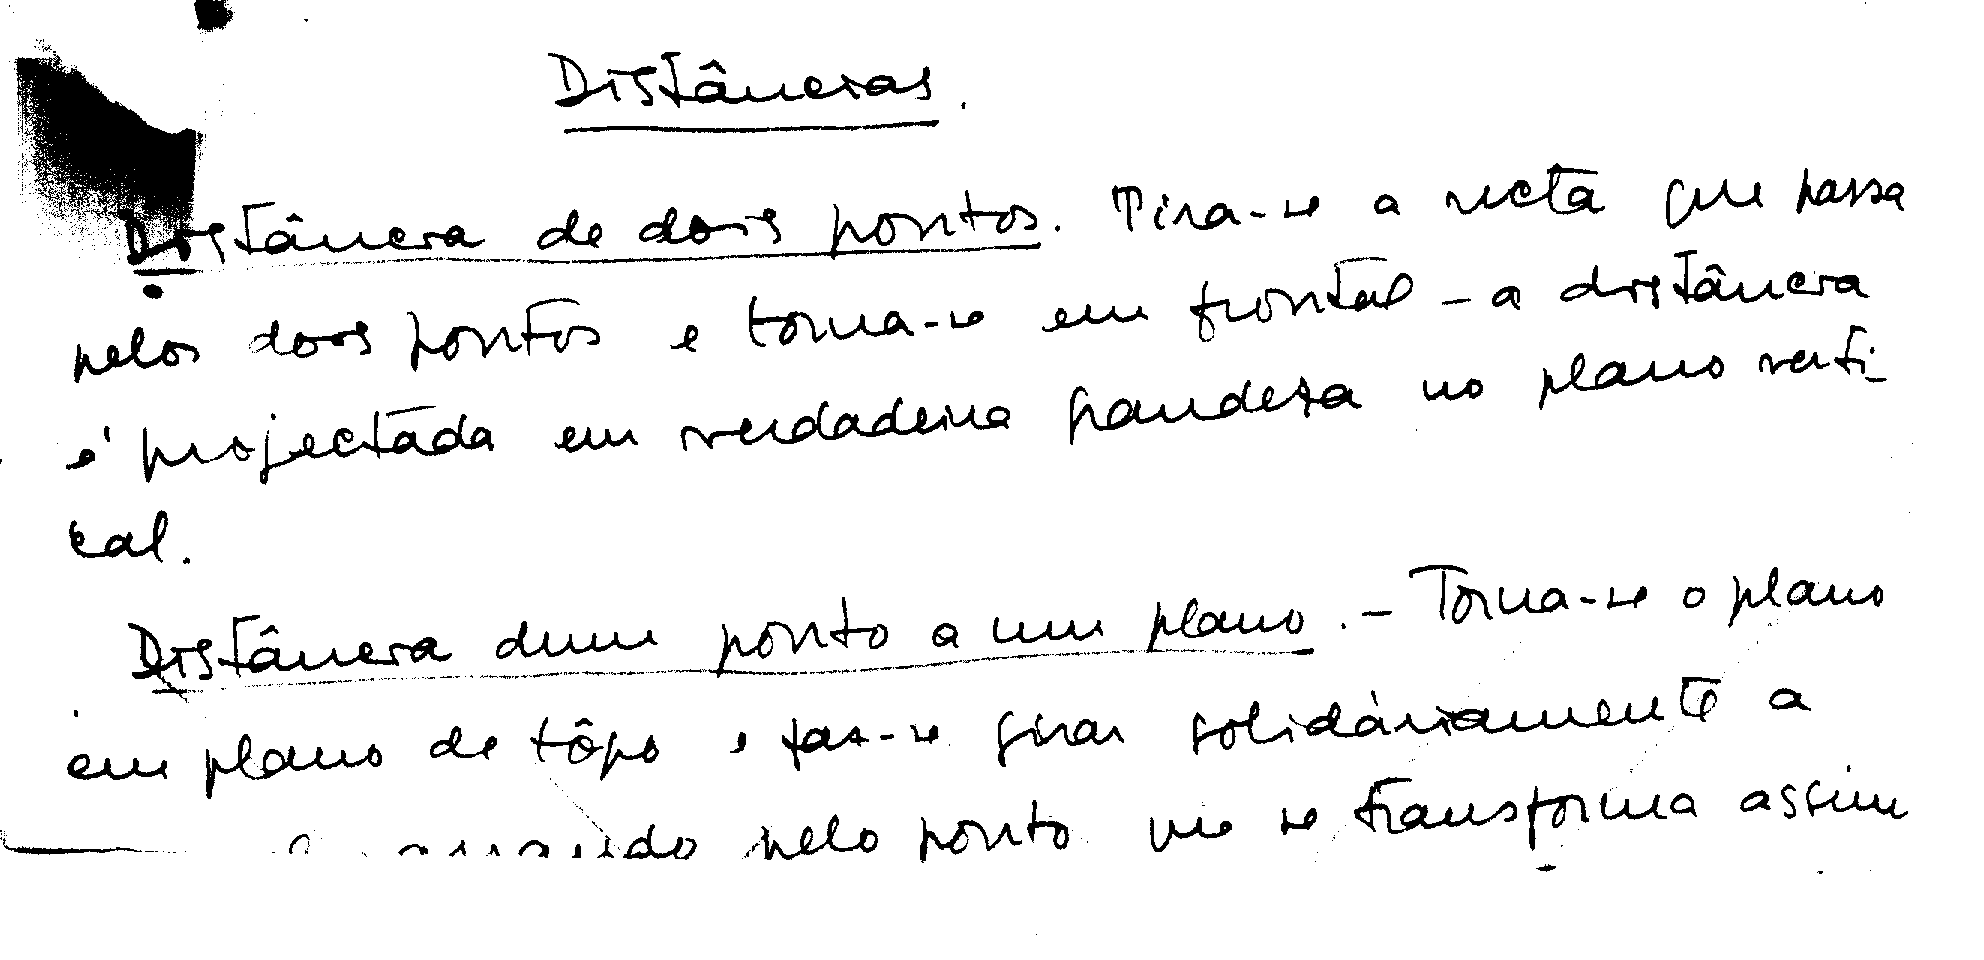 Distâncias.
Distância de dois pontos. Tira-se a recta que passa
pelos dois pontos e torna-se em frontal - a distância
é projectada em verdadeira grandeza no plano verti-
cal.
Distância dum ponto a um plano. - Torna-se o plano
em plano de tôpo e faz-se girar solidáriamente a
pelo ponto que se transforma assim